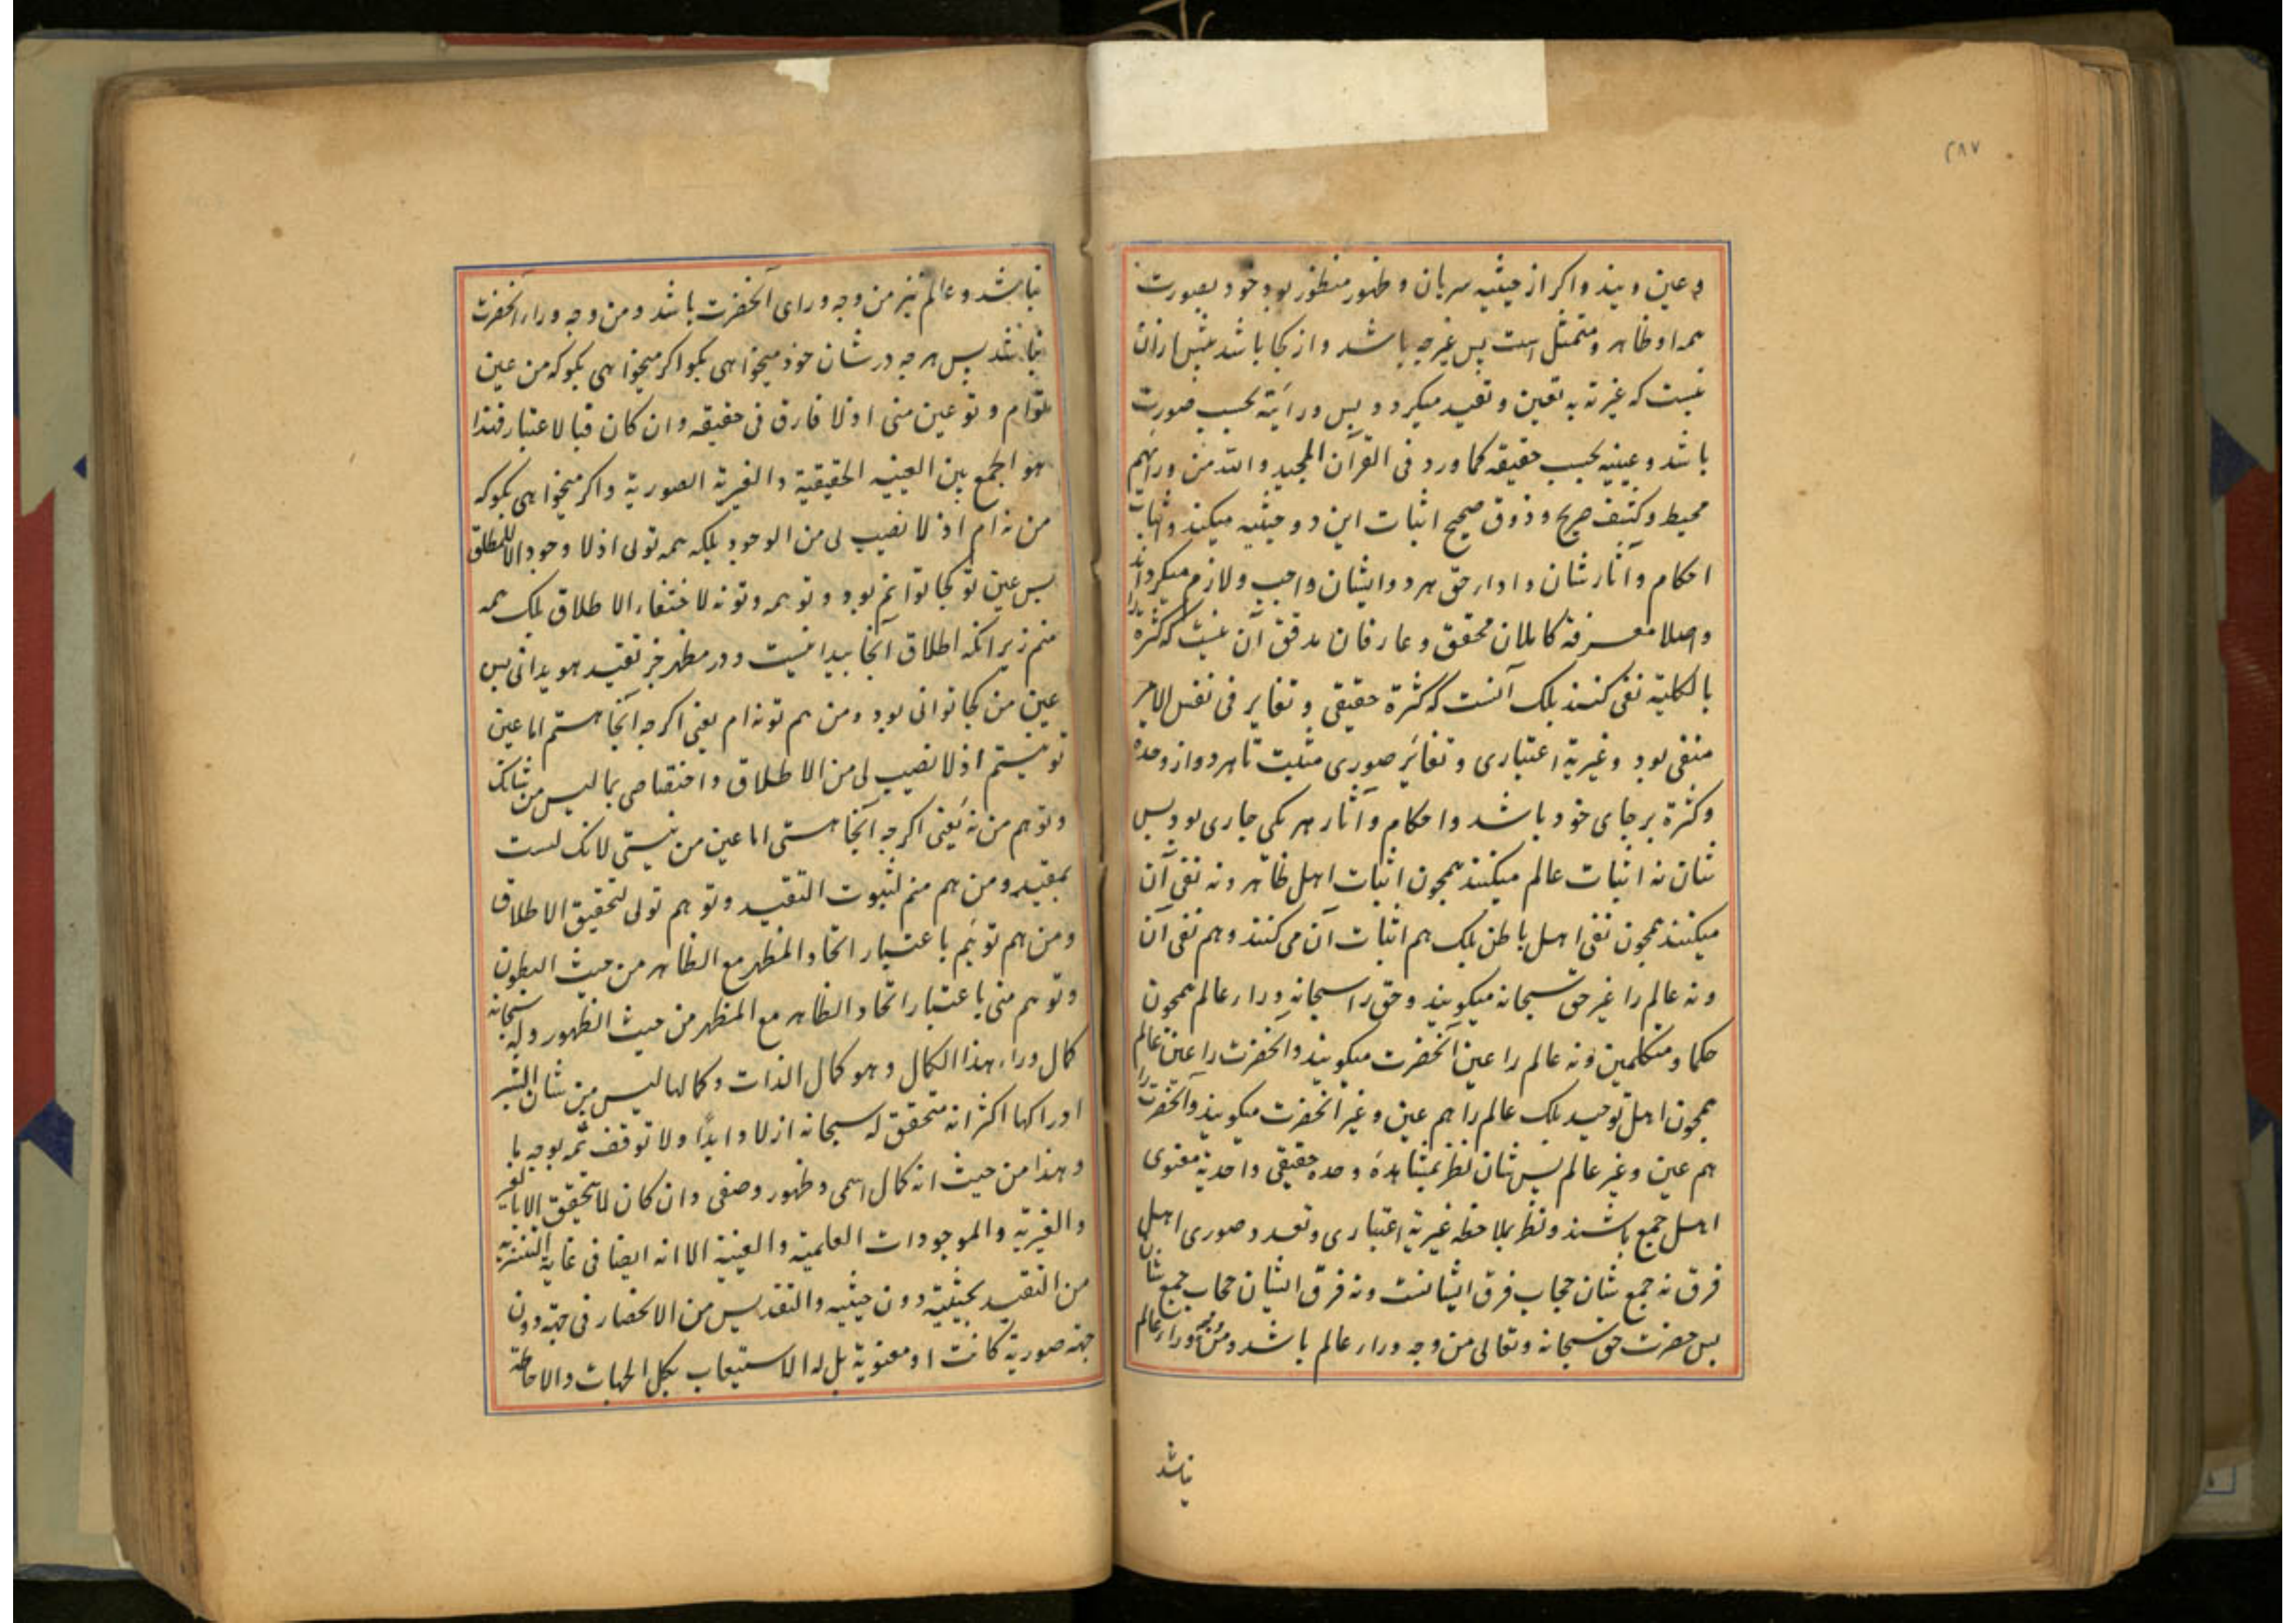 ۲۸۷
و عین ویند و اکر از حیثیه سریان و ظهور منظور بود خود بصورت
همه او ظاهر و متمثل است پس غیر چه باشد و از کجا باشد بیش ازان
نیست که غیرته به تعین و تقید میکردد پس ورائیة بحسب صورت
باشد و عینیه بحسب حقیقه کما ورد فی القرآن المجید والله من ورائهم
محیط و کشف صریح و ذوق صحیح اثبات این دو حیثیه میکند و اثبات
احکام و آثار شان و ادار حق هر دو ایشان واجب و لازم میکرداند
واصلا معرفة کاملان محقق و عارفان مدقق آن نیست که کثرة را
بالکلیة نفی کنند بلک آنست که کثرة حقیقی و تغایر فی نفس الامر
منفی بود و غیریة اعتباری و تغایر صوری مثبت تا هر دو از وحدة
وکثرة بر جای خود باشد و احکام و آثار هر یکی جاری بود پس
شان نه اثبات عالم میکنند همچون اثبات اهل ظاهر و نه نفی آن
میکنند همچون نفی اهل باطن بلک هم اثبات آن می کنند و هم نفی آن
و نه عالم را غیر حق سبحانه میکویند و حق را سبحانه وراء عالم همچون
حکما و متکلمین و نه عالم را عین آنحضرت میکویند و آنحضرت را عین عالم
همچون اهل توحید بلک عالم را هم عین و غیر آنحضرت میکویند و آنحضرت را
هم عین و غیر عالم پس شان نظر بمشاهدهٔ وحده حقیقی و احدیة معنوی
اهل جمع باشند و نظر بملاحظه غیریة اعتباری و تعدد صوری اهل
فرق نه جمع شان حجاب فرق ایشانست و نه فرق ایشان حجاب جمع شان
پس حضرت حق سبحانه و تعالی من وجه وراء عالم باشد و من وجه وراء عالم
نباشد
نباشد و عالم نیز من وجه ورای آنحضرت باشد و من وجه وراء آنحضرت
نباشد پس هر چه در شان خود میخواهی بکو اکر میخواهی بکو که من عین
توام و تو عین منی اذ لا فارق فی حقیقه و ان کان فبالاعتبار فهذا
هو الجمع بین العینیه الحقیقیة و الغیریة الصوریة و اکر میخواهی بکو که
من نه ام اذ لا نصیب لی من الوجود بلکه همه تولی اذ لا وجود الا للمطلق
پس عین تو کجا توانم بود و تو همه و تو نه لاختفاء الاطلاق بلک همه
منم زیرانکه اطلاق آنجا پیدا نیست و در مظهر جز تقید هویدا نی پس
عین من کجا توانی بود و من هم تو نه ام یعنی اکر چه آنجا هستم اما عین
تو نیستم اذ لا نصیب لی من الاطلاق و اختصاصی بما لیس من شانک
و تو هم من نه یعنی اکر چه آنجا هستی اما عین من نیستی لانک لست
بمقید و من هم منم لثبوت التقید و تو هم تولی لتحقیق الاطلاق
و من هم تویم باعتبار اتحاد المظهر مع الظاهر من حیث البطون
و تو هم منی باعتبار اتحاد الظاهر مع المظهر من حیث الظهور و له سبحانه
کمال وراء هذا الکمال و هو کمال الذات و کمالها لیس من شان البشر
ادراکها اکثر انه متحقق له سبحانه ازلا و ابدًا و لا توقف ثمه بوجه ما
و هذا من حیث انه کمال اسمی و ظهور وصفی و ان کان لا یتحقق الا بالغیر
والغیریة والموجودات العلمیة والعینیة الا انه ایضا فی غایة التنزیه
من التقید بحیثیة دون حیثیه والتقدیس من الانحصار فی جهة دون
جهة صوریة کانت او معنویة بل له الاستیعاب بکل الجهات والاحاطة